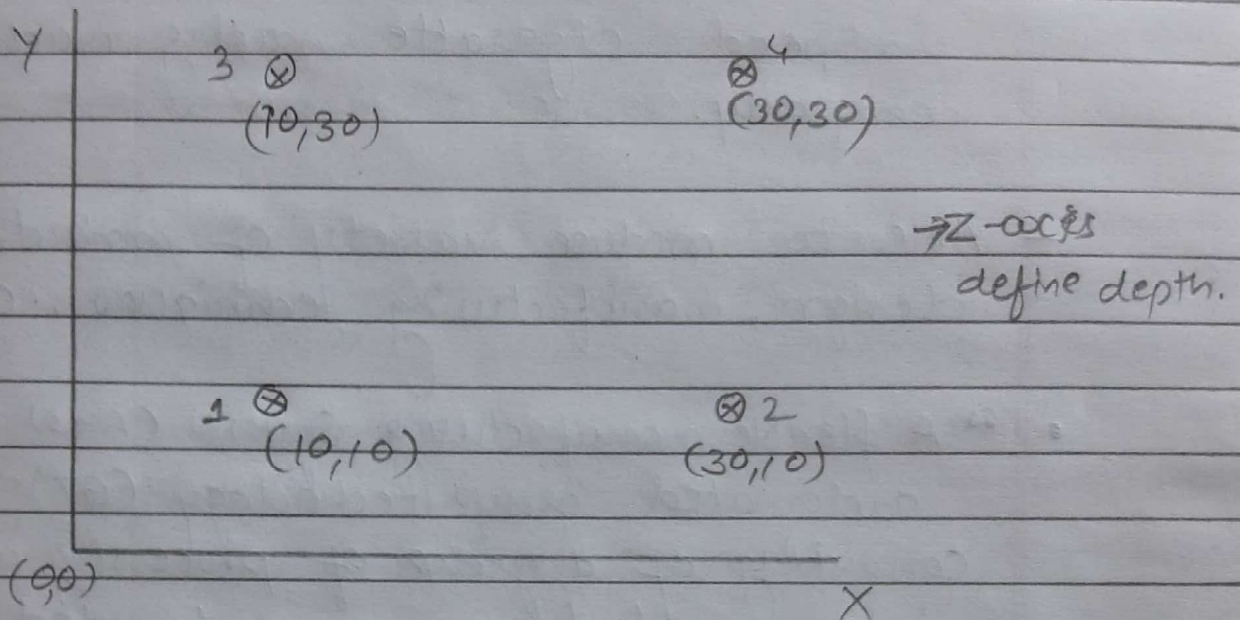 Y
3
(10,30)
4
(30,30)
→Z-axis
define depth.
1
(10,10)
2
(30,10)
(0,0)
X